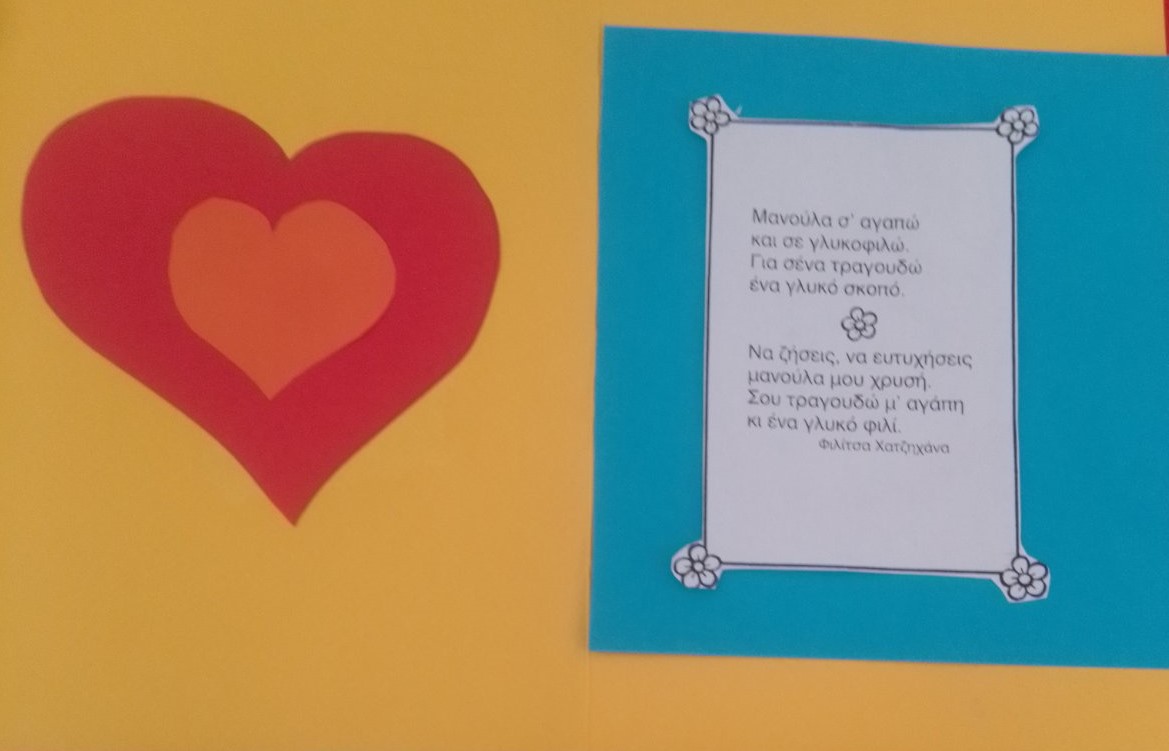 Μανούλα σ' αγαπώ
και σε γλυκοφιλώ.
Για σένα τραγουδώ
ένα γλυκό σκοπό.
Να ζήσεις, να ευτυχήσεις
μανούλα μου χρυσή.
Σου τραγουδώ μ' αγάπη
κι ένα γλυκό φιλί.
Φιλίτσα Χατζηχάνα